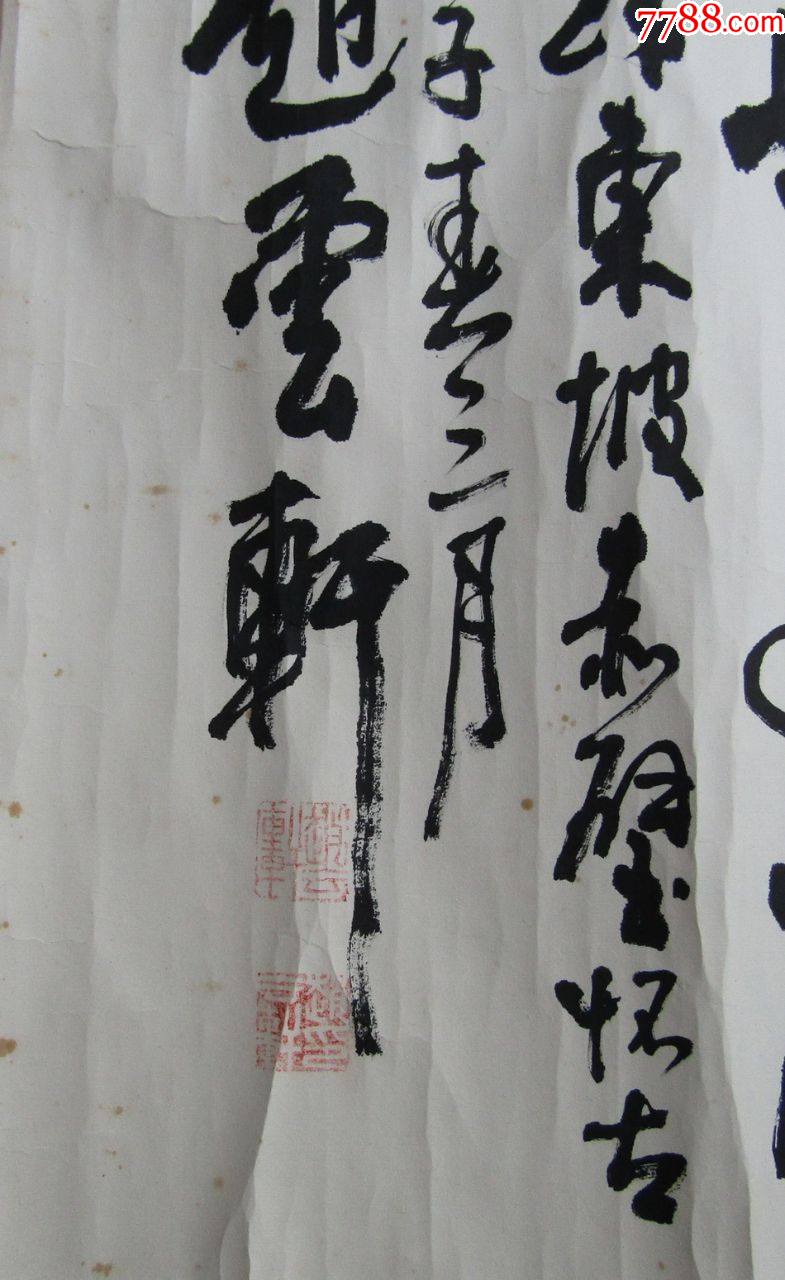 7788.com
東坡赤壁怀古
子春三月
趙雲軒